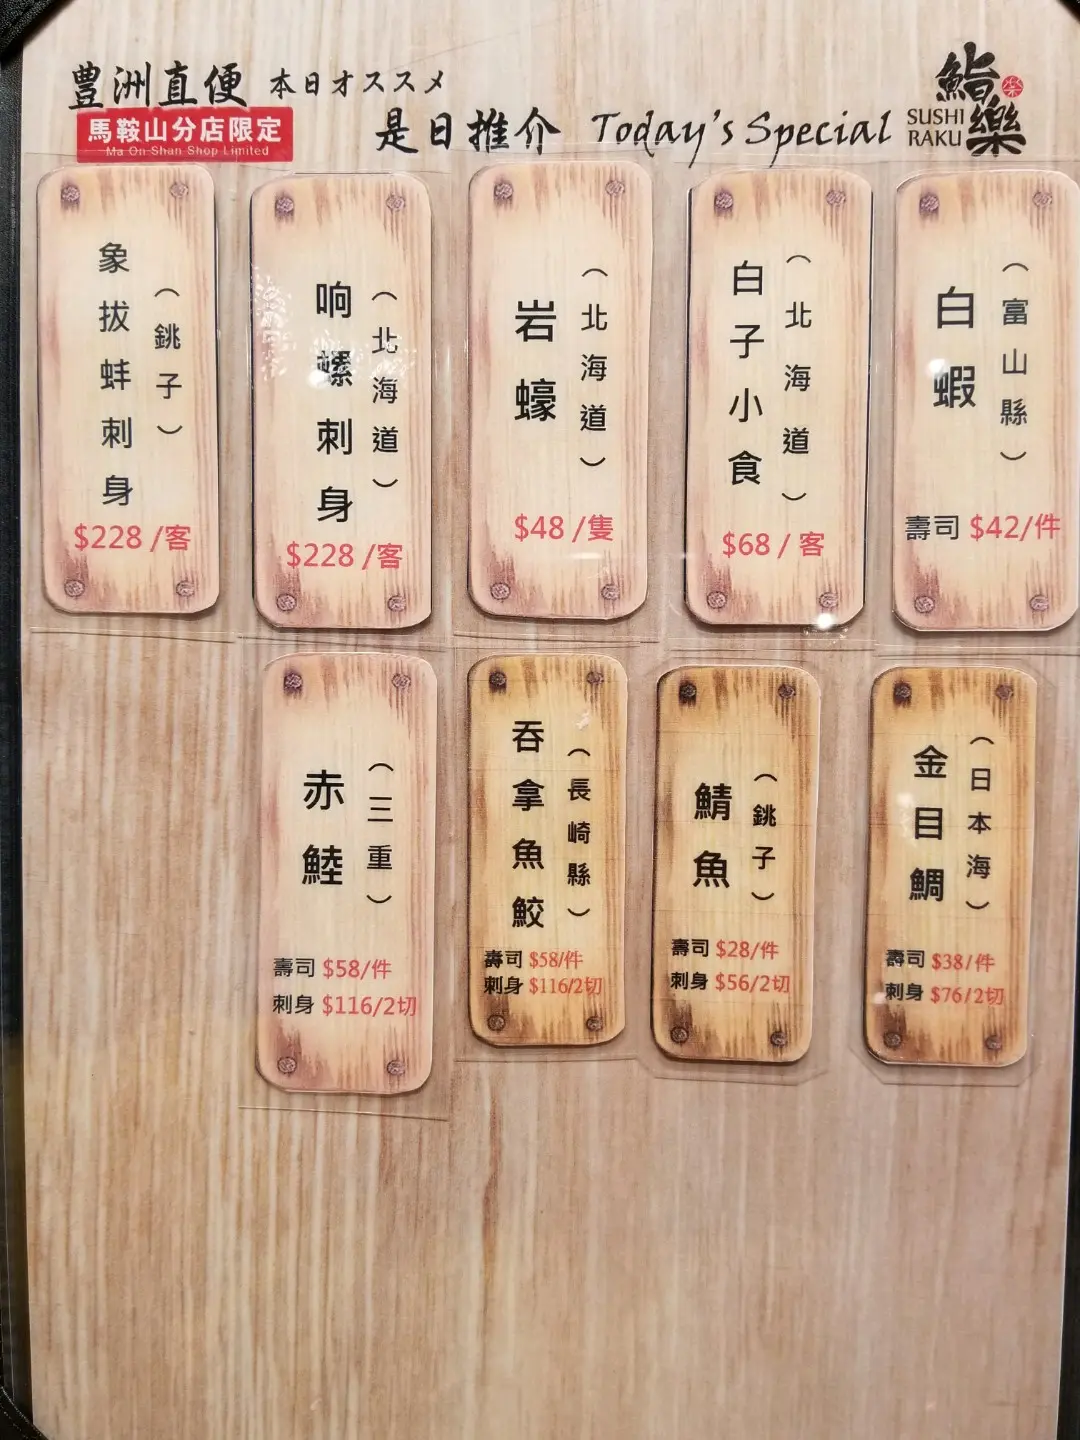 豊洲直便 本日オススメ
馬鞍山分店限定
Ma On Shan Shop Limited
是日推介 Today's Special
鮨樂
SUSHI
RAKU
象拔蚌刺身
（銚子）
$228 /客
响螺刺身
（北海道）
$228 /客
岩蠔
（北海道）
$48 /隻
白子小食
（北海道）
$68 / 客
白蝦
（富山縣）
壽司 $42/件
赤鯥
（三重）
壽司 $58/件
刺身 $116/2切
吞拿魚鮫
（長崎縣）
壽司 $58/件
刺身 $116/2切
鯖魚
（銚子）
壽司 $28/件
刺身 $56/2切
金目鯛
（日本海）
壽司 $38/件
刺身 $76/2切